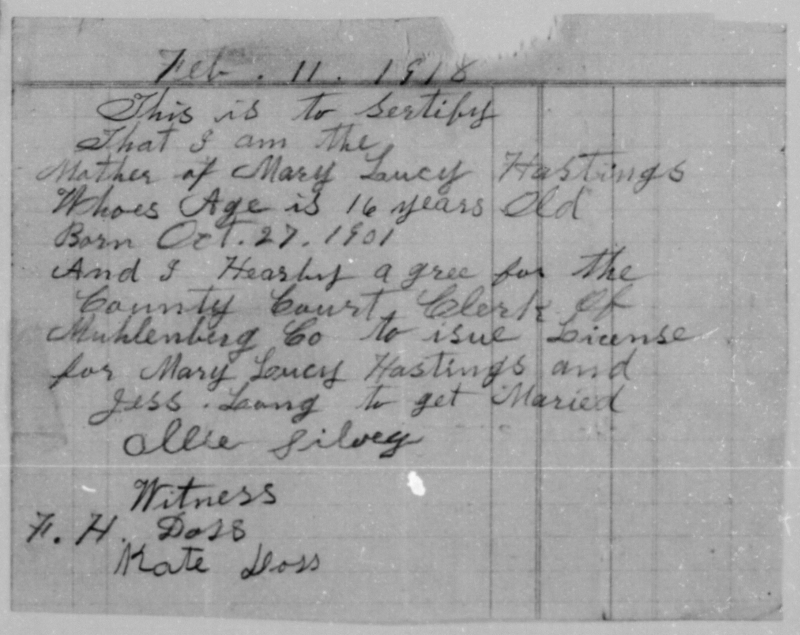 Feb. 11. 1918
This is to Sertify
That I am the
Mother of Mary Lucy Hastings
Whoes Age is 16 years Old
Born Oct. 27. 1901
And I Hearby agree for the
County Court Clerk of
Muhlenberg Co to isue License
for Mary Lucy Hastings and
Jess. Long to get Maried
Ollie Silvey
Witness
F. H. Doss
Kate Doss